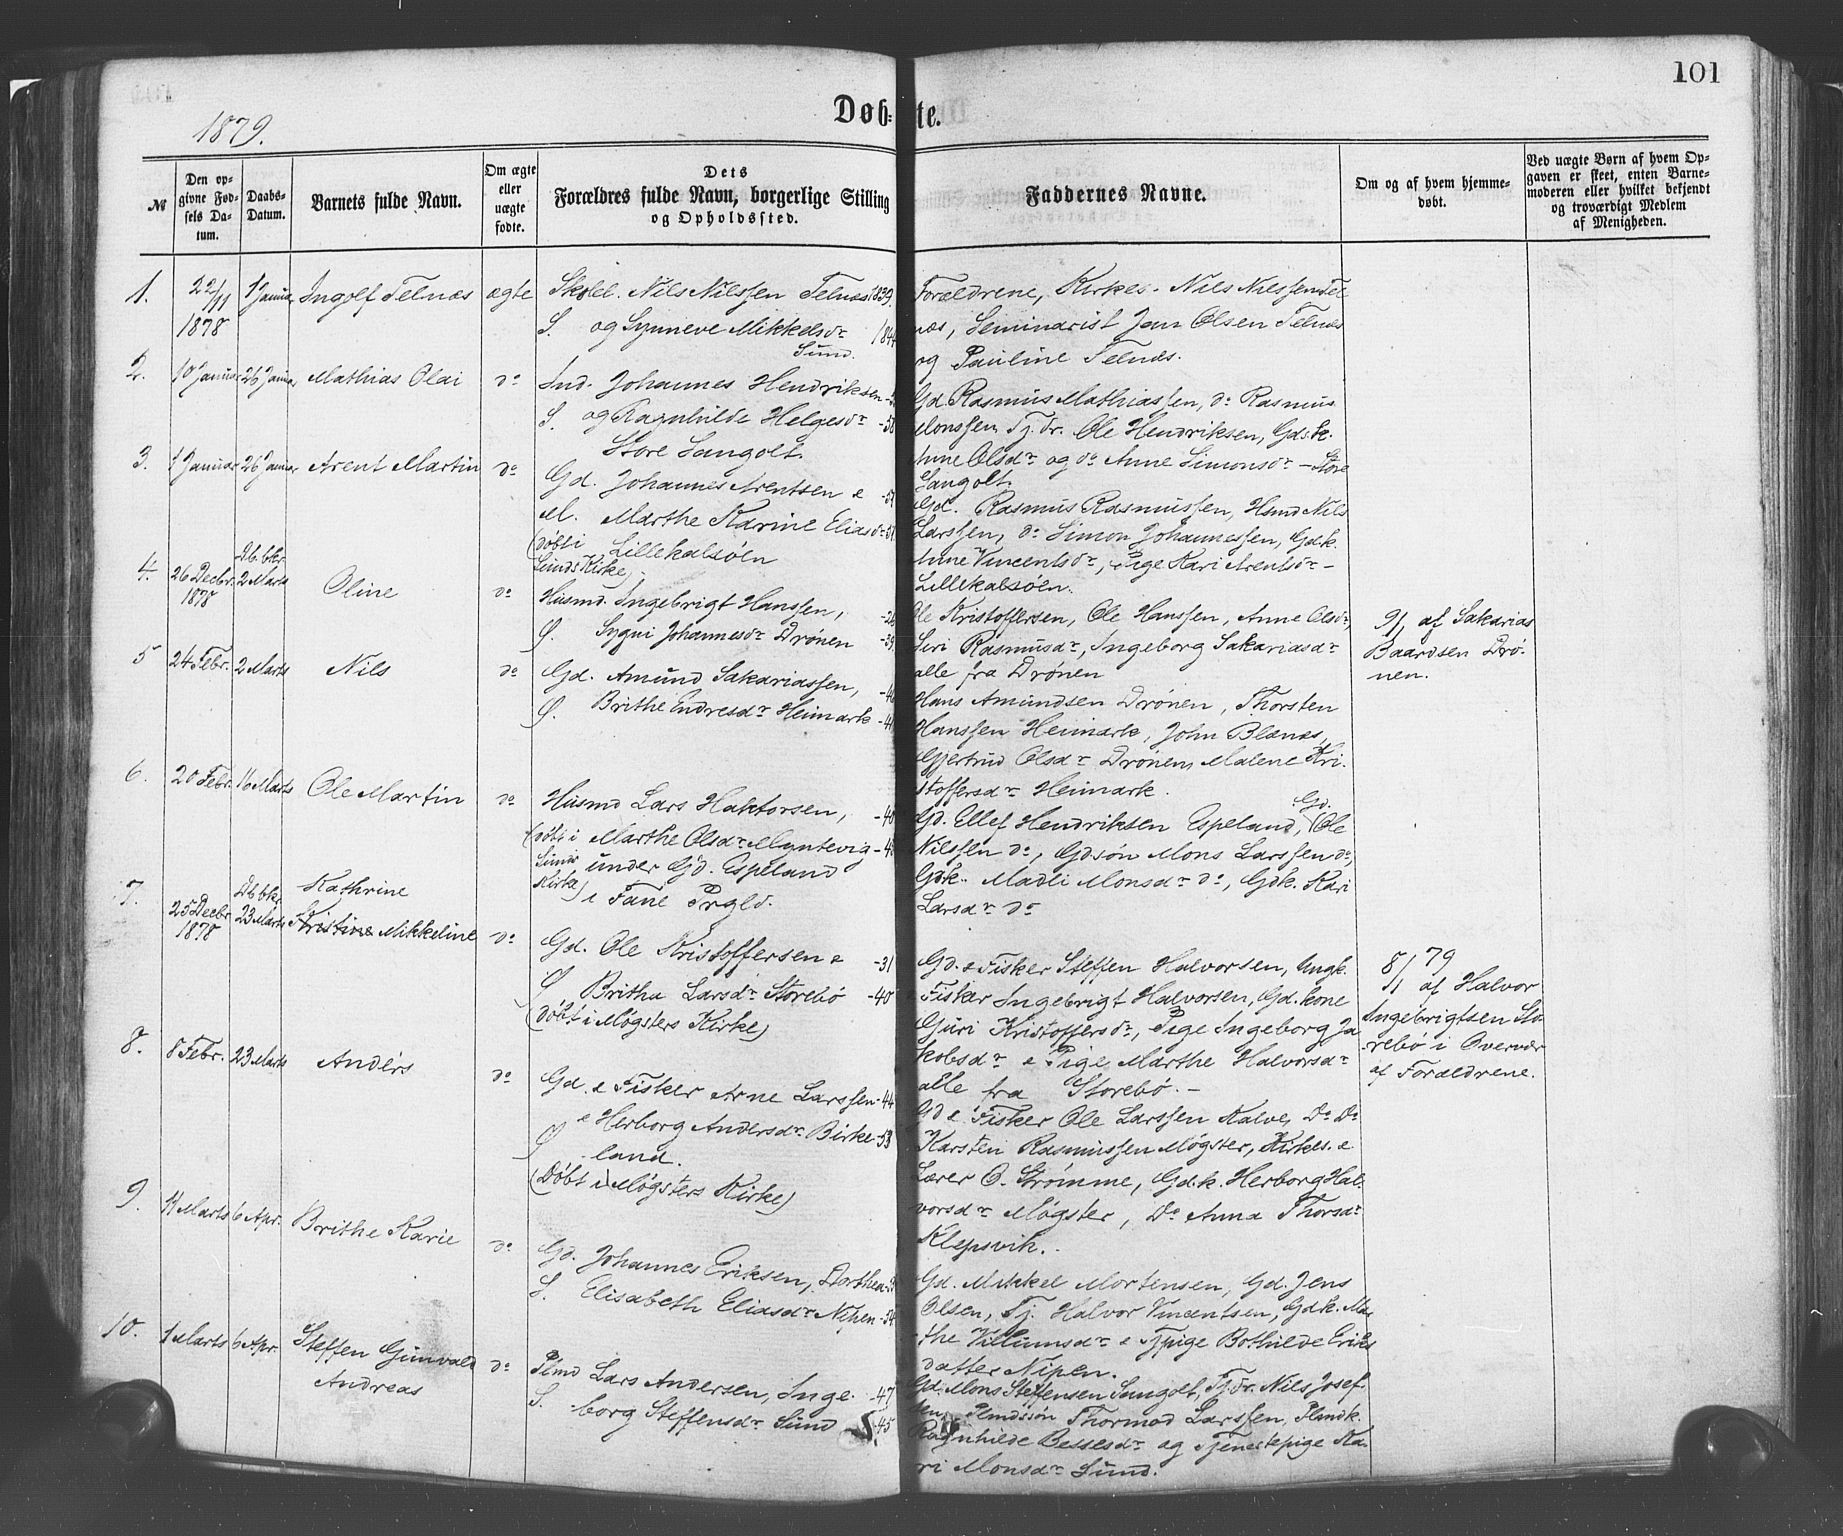 101
Døb- te.
1879.
№
Den op-
givne Fød-
sels Da-
tum.
Daabs-
Datum.
Barnets fulde Navn.
Om ægte
eller
uægte
fødte.
Dets
Forældres fulde Navn, borgerlige Stilling
og Opholdssted.
Faddernes Navne.
Om og af hvem hjemme-
døbt.
Ved uægte Børn af hvem Op-
gaven er skeet, enten Barne-
moderen eller hvilket bekjendt
og troværdigt Medlem
af Menigheden.
1. 22/11 1 Januar Ingolf Telnæs ægte Skolel. Nils Nilssen Telnæs 1839.
1878 S. og Synneve Mikkelsdr
Sund.
Forældrene, Kirkes. Nils Nilssen Tel
næs, Seminarist Jan Olsen Telnæs
og Pauline Telnæs.
2. 10 Januar 26 Januar Mathias Olai do Ind. Johannes Hendriksen
S. og Ragnhilde Helgesdr -58
Store Sangolt.
Gd. Rasmus Mathiassen, do Rasmus
Monssen, Tj. Dr. Ole Hendriksen, Gds.k.
Anne Olsdr og do Anne Simonsdr - Store
Sangolt.
3. 1 Januar 26 Januar Arent Martin do Gd. Johannes Arentsen &
M. Marthe Karine Eliasdr -51
(døbt i Lillekalsøen
Sunds Kirke)
Gd. Rasmus Rasmussen, Hsmd Nils
Larssen, do Simon Johannessen, Gdk.
Anne Vincentsdr, Pige Kari Arentsdr -
Lillekalsøen.
4. 26 Decbr. 1878 Db. bkr. 2 Marts Oline do Husmd. Ingebrigt Hanssen, -28
Ø. Sygni Johannesdr Drønen -39
Ole Kristoffersen, Ole Hanssen, Anne Olsdr,
Siri Rasmusdr, Ingeborg Sakariasdr
alle fra Drønen
9/1 af Sakarias
Baardsen Drø-
nen.
5 24 Febr. 2 Marts Nils do Gd. Amund Sakariassen,
Ø. Brithe Endresdr Heimark
Hans Amundsen Drønen, Thorsten
Hanssen Heimark, John Blænes,
Gjertrud Olsdr Drønen, Malene Kri-
stoffersdr Heimark.
6. 20 Febr. 16 Marts Ole Martin do Husmd Lars Haktorsen, -40
(døbt i Marthe Olsdr Myntevig
Sunds under Gd. Espeland
Kirke) i Fane Prgld.
Gd. Ellef Hendriksen Espeland, Gd. Ole
Nilssen do, Gdsøn Mons Larssen do,
Gdk. Madli Monsdr do, Gdk. Kari
Larsdr do
7. 25 Decbr 1878 Db. bkr 23 Marts Kathrine
Kristine Mikkeline do Gd. Ole Kristoffersen & -31
Ø Britha Larsdr Storebø -40
(døbt i Møgsters Kirke)
Gd. & Fisker Steffen Halvorsen, Ungk.
& Fisker Ingebrigt Halvorsen, Gd. kone
Guri Kristoffersdr, Pige Ingeborg Ja
kobsdr & Pige Marthe Halvorsdr
alle fra Storebø. -
8/1 79
af Halvor
Ingebrigtsen Sto-
rebø i Overvær
af Forældrene.
8. 8 Febr. 23 Marts Anders do Gd. & Fisker Arne Larssen -44
& Herborg Andersdr Birke- -53
Ø land.
(Døbt i Møgsters Kirke)
Gd & Fisker Ole Larssen Kalve, Do Do
Karsten Rasmussen Møgster, Kirkes. &
Lærer O. Strømme, Gd.k. Herborg Hal-
vorsdr Møgster, Do Anna Thorsdr
Klepsvik.
9. 11 Marts 6 Apr. Brithe Karie do Gd. Johannes Eriksen, Dorthea
S. Elisabeth Eliasdr Nipen -34
Gd. Mikkel Mortensen, Gd. Jens
Olsen, Tj. Halvor Vincentsen, Gdk. Mar
the Villumsdr & Tjpige Bothilde Eriks
datter Nipen.
10. 1 Marts 6 Apr. Steffen Gunvald
Andreas do Plmd Lars Andersen, Inge- -47
S. borg Steffensdr Sund -45
Gd. Mons Steffensen Sangolt, Tj. Dr. Nils Josef-
sen, Plmdssøn Thormod Larssen, Plmdk.
Ragnhilde Bessesdr og Tjenestepige Ka-
ri Monsdr Sund.